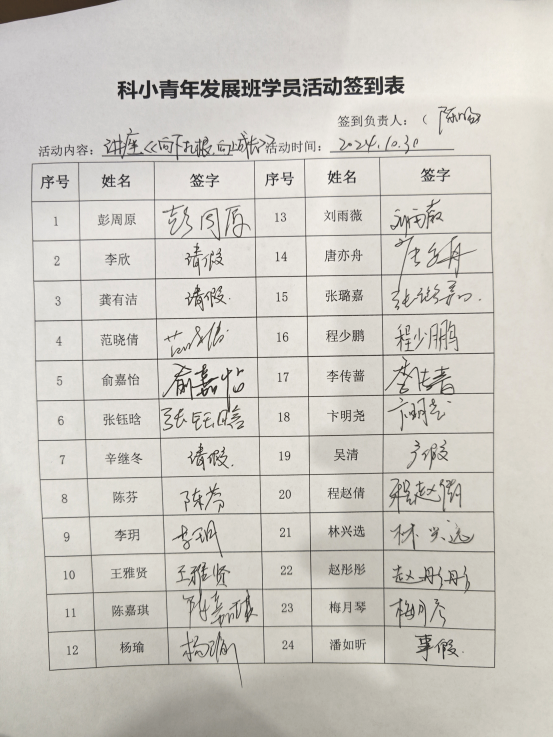 科小青年发展班学员活动签到表
签到负责人:(
活动内容:讲座《向下扎根,向上成长》活动时间:2024.10.30
序号 姓名 签字 序号 姓名 签字
1 彭周原 彭周原 13 刘雨薇 刘雨薇
2 李欣 请假 14 唐亦舟 唐亦舟
3 龚有洁 请假. 15 张璐嘉 张璐嘉.
4 范晓倩 范晓倩 16 程少鹏 程少鹏
5 俞嘉怡 俞嘉怡 17 李传蔷 李传蔷
6 张钰晗 张钰晗 18 卞明尧 卞明尧
7 辛继冬 请假. 19 吴清 产假
8 陈芬 陈芬 20 程赵倩 程赵倩
9 李玥 李玥 21 林兴选 林兴选
10 王雅贤 王雅贤 22 赵彤彤 赵彤彤
11 陈嘉琪 陈嘉琪 23 梅月琴 梅月琴
12 杨瑜 杨瑜 24 潘如昕 事假.